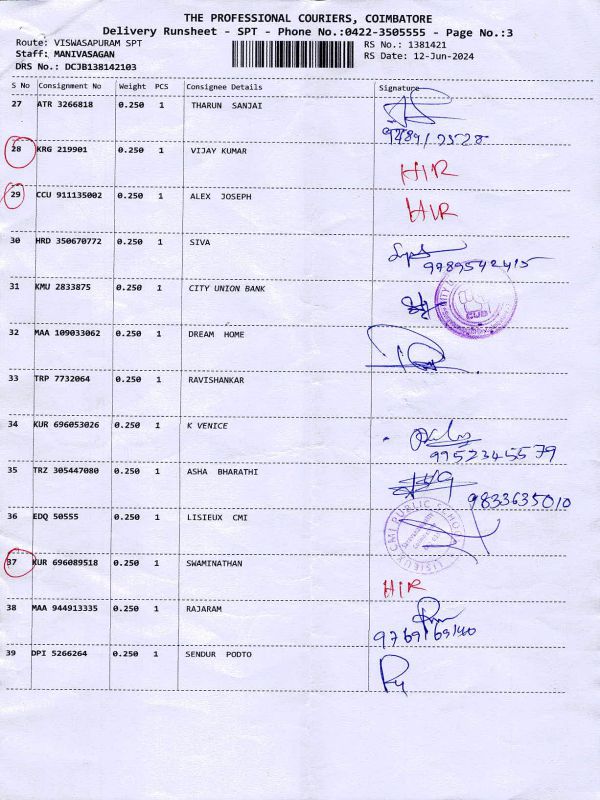 THE PROFESSIONAL COURIERS, COIMBATORE
Delivery Runsheet - SPT - Phone No.:0422-3505555 - Page No.:3
Route: VISWASAPURAM SPT RS No.: 1381421
Staff: MANIVASAGAN RS Date: 12-Jun-2024
DRS No.: DCJB138142103
S No Consignment No Weight PCS Consignee Details Signature
27 ATR 3266818 0.250 1 THARUN SANJAI
28 KRG 219901 0.250 1 VIJAY KUMAR HIR
29 CCU 911135002 0.250 1 ALEX JOSEPH HIR
30 HRD 350670772 0.250 1 SIVA
9789542415
31 KMU 2833875 0.250 1 CITY UNION BANK CUB
32 MAA 109033062 0.250 1 DREAM HOME
33 TRP 7732064 0.250 1 RAVISHANKAR
34 KUR 696053026 0.250 1 K VENICE
9952345579
35 TRZ 305447080 0.250 1 ASHA BHARATHI
9833635010
36 EDQ 50555 0.250 1 LISIEUX CMI LISIEUX CMI PUBLIC SCHOOL
37 KUR 696089518 0.250 1 SWAMINATHAN HIR
38 MAA 944913335 0.250 1 RAJARAM
39 DPI 5266264 0.250 1 SENDUR PODTO